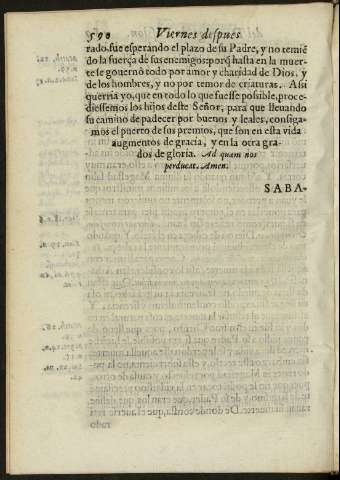 590 Viernes despues
rado, fue esperando el plazo de su Padre, y no temiẽ
do la fuerça de sus enemigos: porq̃ hasta en la muer-
te se gouernò todo por amor y charidad de Dios, y
de los hombres, y no por temor de criaturas. Asi
querria yo, que en todo lo que fuesse possible, proce-
diessemos los hijos deste Señor, para que lleuando
su camino de padecer por buenos y leales, consiga-
mos el puerto de sus premios, que son en esta vida
augmentos de gracia, y en la otra gra-
dos de gloria. Ad quam nos
perducat. Amen.
SABA-